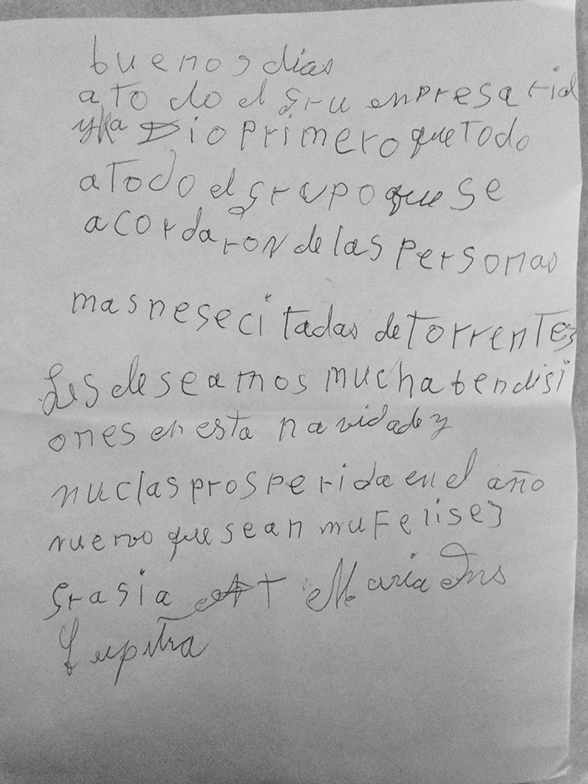 buenos días
a To do el gru enpresarial
y ha Dio primero que Todo
a Todo el grupo que se
acordaron de las personas
mas nesecitadas de Torrentes
Les deseamos mucha bendisi
ones en esta navidades
muclas prosperida en el año
nuevo que sean mu Felises
grasia Att Maria Ins